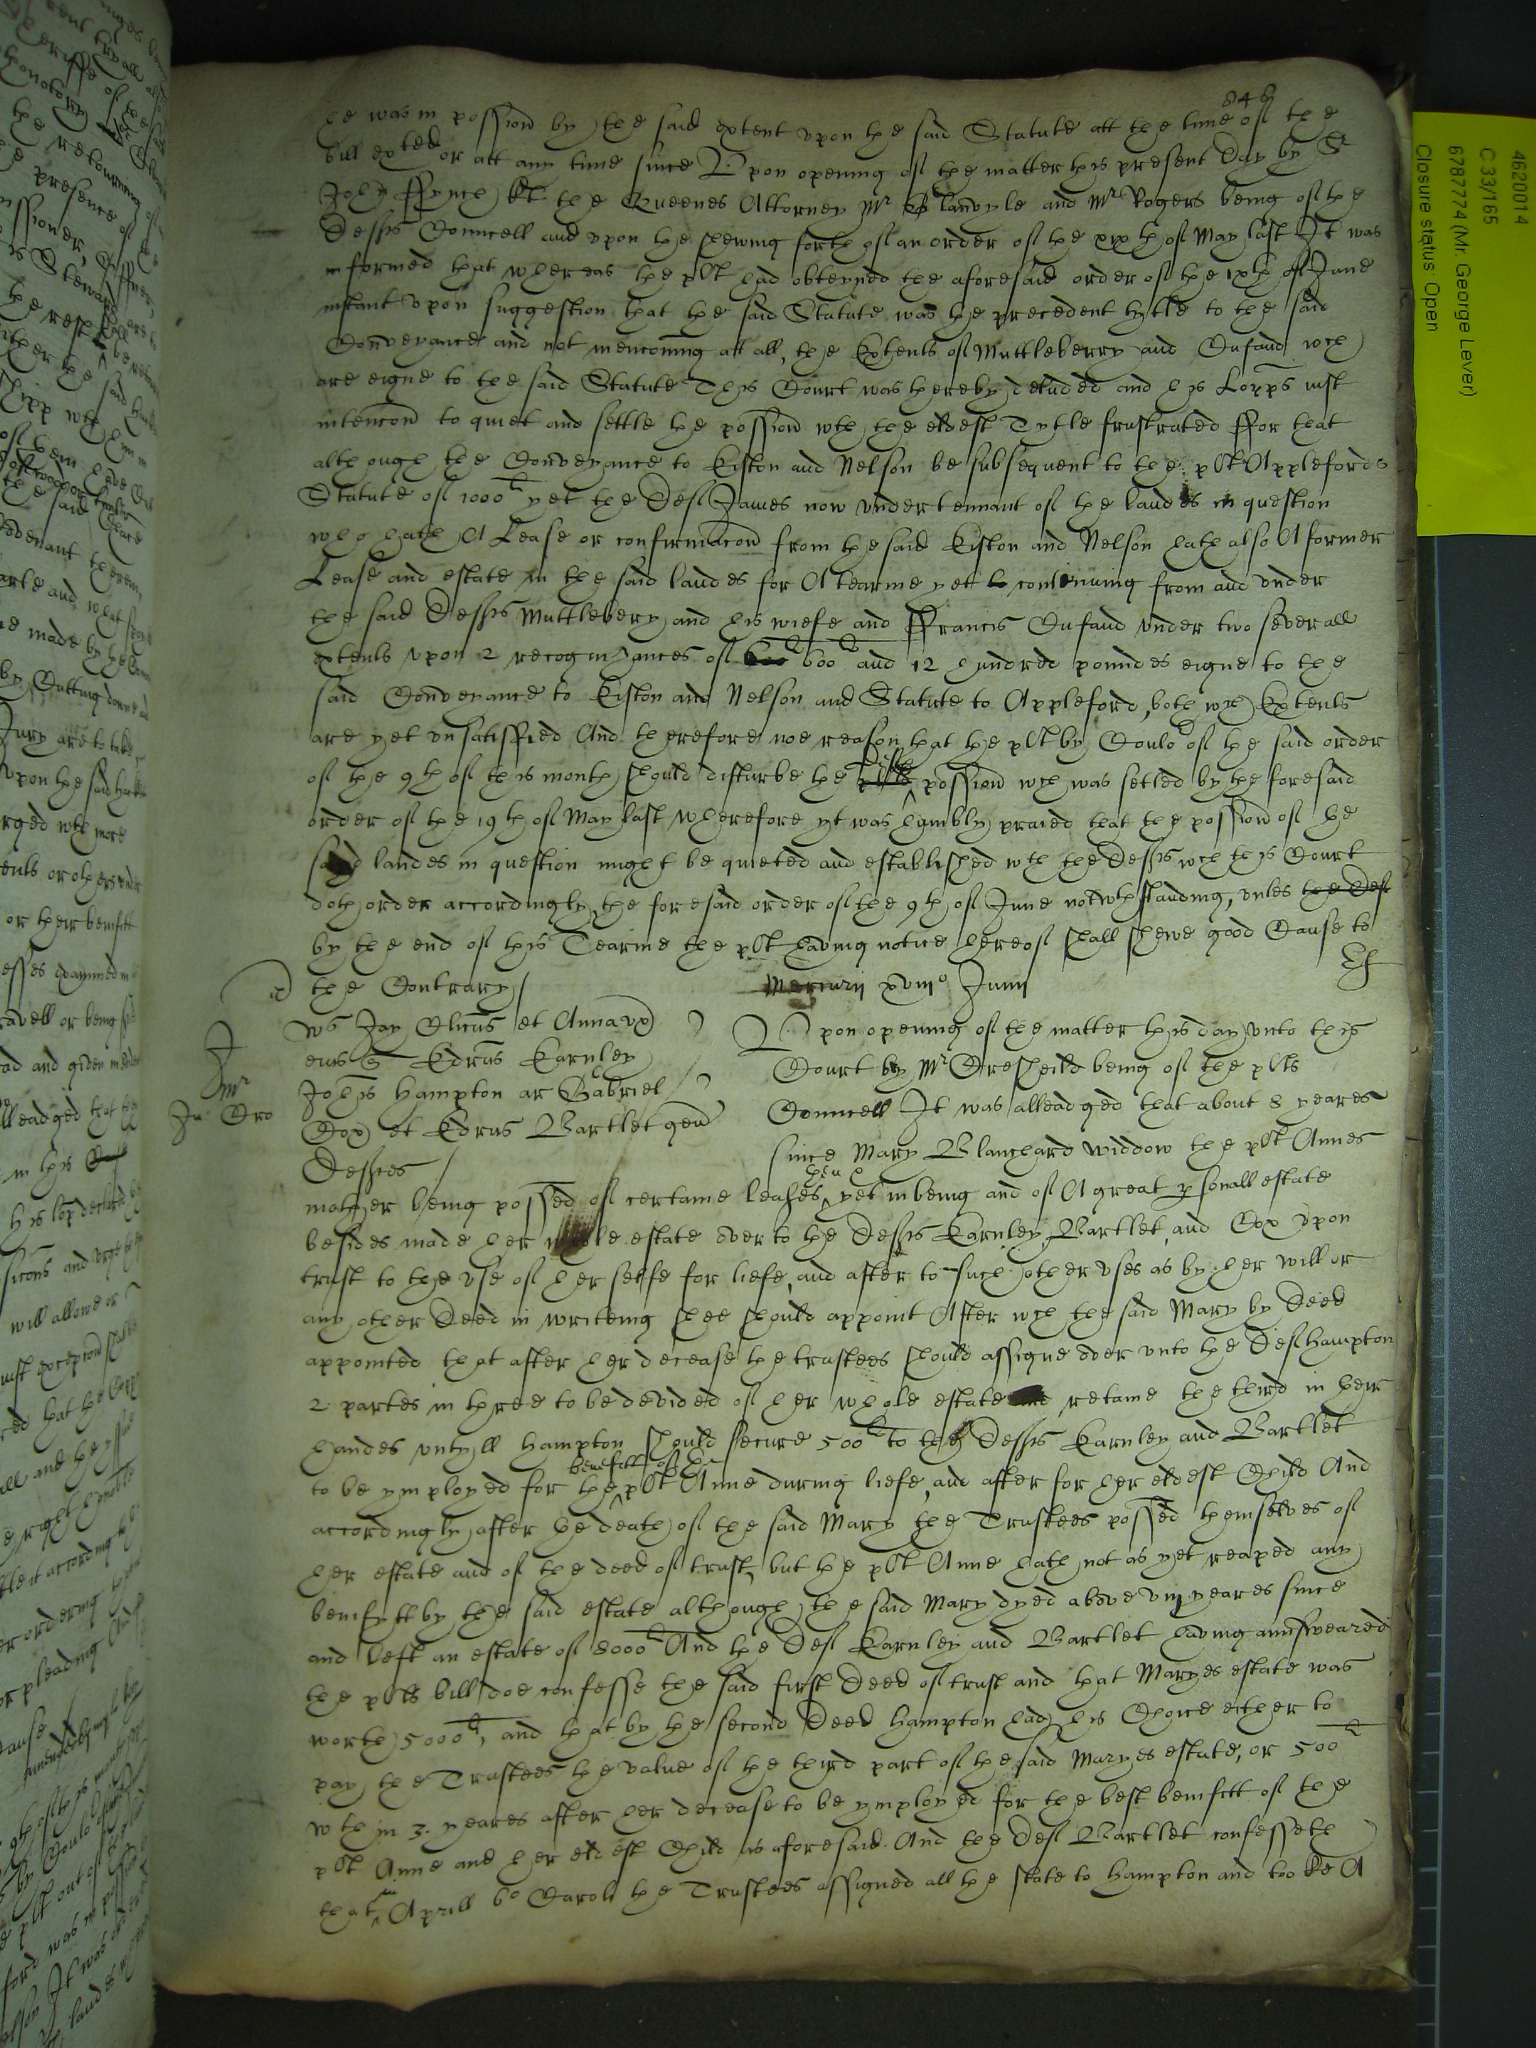 848
he was in possion by the said extent upon the said Statute att the time of the
bill exted or att any time since Upon opening of the matter this present day by Sr
John ffynch kt the Queenes Attorney Mr Glanvyle and Mr Rogers being of the
Defts Councell and upon the shewing forth of an order of the xixth of May last It was
informed that whereas the plt had obteyned the aforesaid order of the ixth of June
instant upon suggestion that the said Statute was the precedent tytle to the said
Conveyance and not menconing att all, the Extents of Muttleberry and Cufaud wch
are eigne to the said Statute This Court was hereby deluded and his Lopps iust
intencon to quiet and settle the possion wth the eldest Tytle frustrated ffor that
although the Conveyance to Kiston and Nelson be subsequent to the plt Applefords
Statute of 1000l yet the Deft James now undertennant of the landes in question
who hath A Lease or confirmacon from the said Kiston and Nelson hath also A former
Lease and estate in the said landes for A tearme yet continuing from and under
the said Defts Muttlebery and his wiefe and ffrancis Cufaud under two severall
extents upon 2 recognizances of 600l and 12 hundred poundes eigne to the
said Conveyance to Kiston and Nelson and Statute to Appleford, both wch Extents
are yet unsatisfied And therefore noe reason that the plt by Coulor of the said order
of the 9th of this month should disturbe the possion wch was setled by the foresaid
order of the 19th of May last Wherefore yt was humbly praied that the possion of the
said landes in question might be quieted and established wth the Defts wch this Court
doth order accordingly, the foresaid order of the 9th of June notwthstanding, unles the Deft
by the end of this Tearme the plt having notice hereof shall shewe good Cause to
the Contrary
Mercurii xviiio Junii
Ws Jay Clicus et Anna ux
eius Edrus Karnley
Johis Hampton ar Gabriel
Cox et Edrus Bartlet gen
Deftes
Upon opening of the matter this day unto this
Court by Mr Cresheild being of the plts
Councell It was alleadged that about 8 yeares
since Mary Blanchard widdow the plt Annes
mother being possed of certaine leases then & yet in being and of A great psonall estate
besides made her whole estate over to the Defts Karnley, Bartlet, and Cox upon
trust to the use of her selfe for liefe, and after to such other uses as by her will or
any other Deed in writeing shee should appoint After wch the said Mary by Deed
appointed that after her decease the trustees should assigne over unto the Deft Hampton
2 partes in three to be devided of her whole estate and retaine the third in their
handes untyll Hampton should secure 500l to the Defts Karnley and Bartlet
to be ymployed for the benefitt of the plt Anne during liefe, and after for her eldest Child And
accordingly after the death of the said Mary the Trustees possed themselves of
her estate and of the deed of trust, but the plt Anne hath not as yet reaped any
benifytt by the said estate although the said Mary dyed above viii yeares since
and left an estate of 8000l And the Deft Karnley and Bartlet having annsweared
the plts bill doe confesse the said first Deed of trust and that Maryes estate was
worth 5000l, and that by the second Deed Hampton had his Choice either to
pay the Trustees the value of the third part of the said Maryes estate, or 500l
wthin 3. yeares after her decease to be ymployed for the best benifitt of the
plt Anne and her eldest Child as aforesaid. And the Deft Bartlet confesseth
that in Aprill 6o Caroli the Trustees assigned all the state to Hampton and tooke A
4620014
C 33/165
6787774 (Mr. George Lever)
Closure status: Open